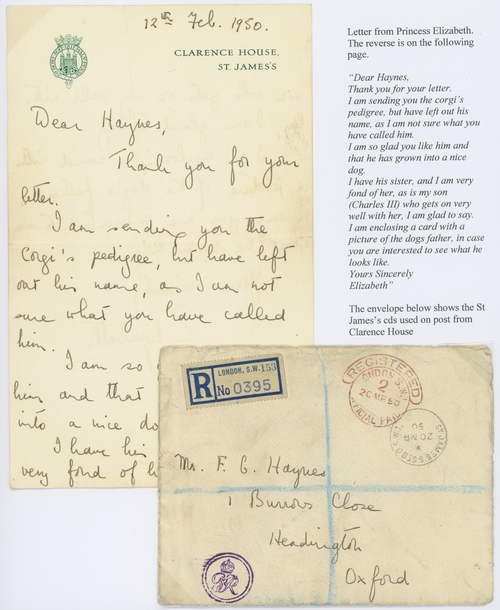 12th Feb. 1950.
CLARENCE HOUSE,
ST. JAMES'S
Dear Haynes,
Thank you for your
letter.
I am sending you the
Corgi's pedigree, but have left
out his name, as I am not
sure what you have called
him.
I am so
him and that
into a nice do
I have his
very fond of h
Letter from Princess Elizabeth.
The reverse is on the following
page.
“Dear Haynes,
Thank you for your letter.
I am sending you the corgi’s
pedigree, but have left out his
name, as I am not sure what you
have called him.
I am so glad you like him and
that he has grown into a nice
dog.
I have his sister, and I am very
fond of her, as is my son
(Charles III) who gets on very
well with her, I am glad to say.
I am enclosing a card with a
picture of the dogs father, in case
you are interested to see what he
looks like.
Yours Sincerely
Elizabeth”
The envelope below shows the St
James’s cds used on post from
Clarence House
R
LONDON, S.W. 153
No 0395
REGISTERED
LONDON S.W.1
2
20 MR 50
OFFICIAL PAID
ST JAMES'S ST B.O. S.W.1
20 MR
50
Mr. F. C. Haynes
1 Burrows Close
Headington
Oxford